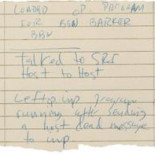 LOADED OP PROGRAM
FOR BEN BARKER
BBN
Talked to SRI
Host to Host
Left op imp program
running after sending
a host dead message
to imp.